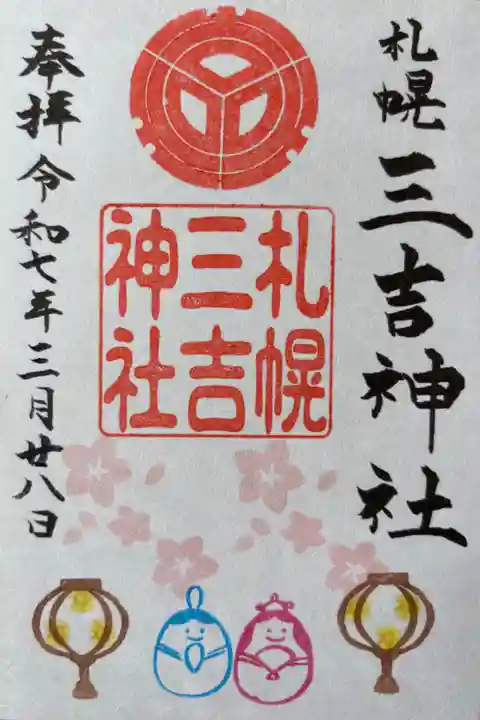 札幌三吉神社
札幌
三吉
神社
奉拝令和七年三月廿八日